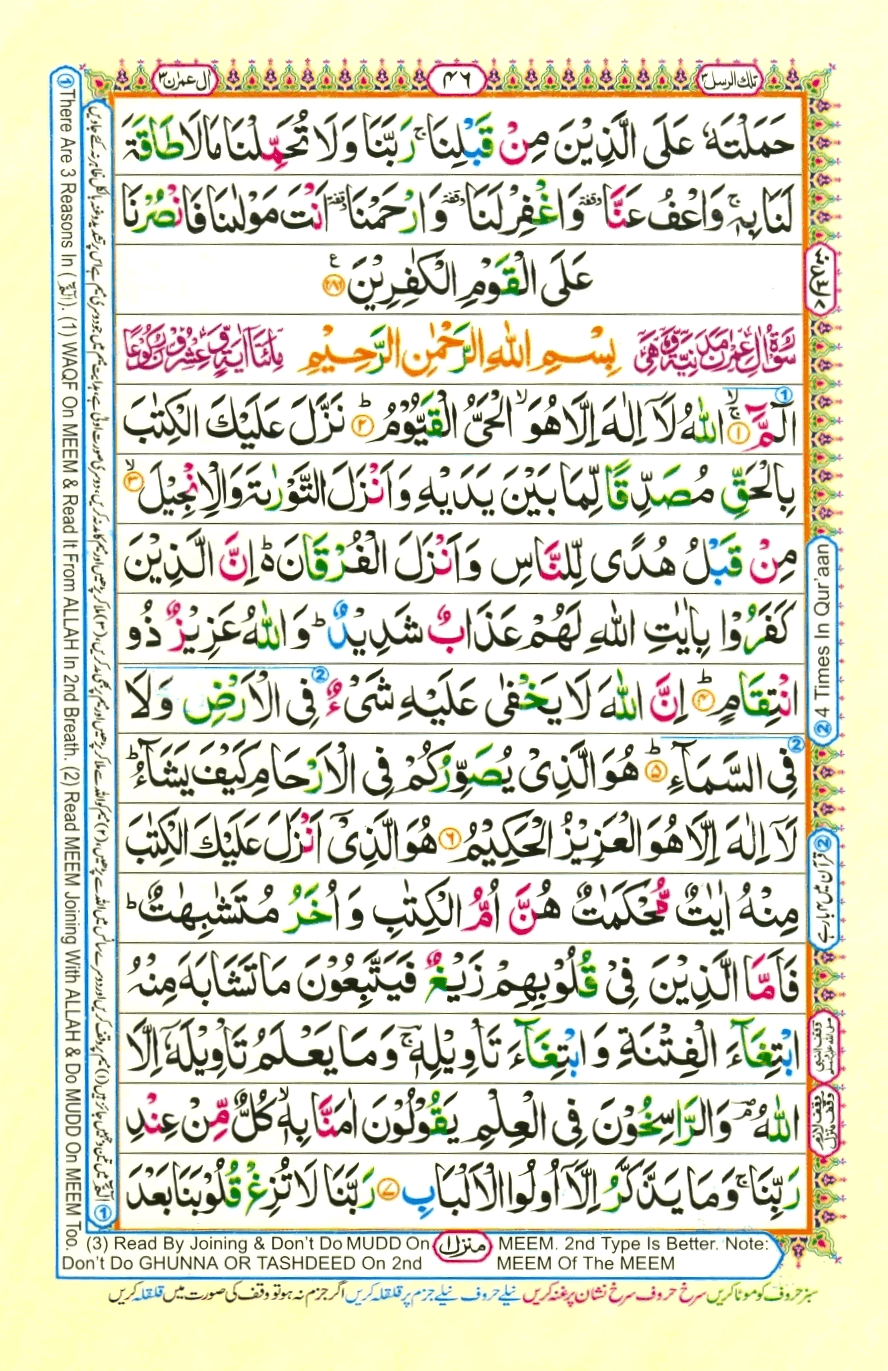 تلك الرسل ٣
٤٦
اٰل عمرٰن ٣
حَمَلْتَهٗ عَلَى الَّذِيْنَ مِنْ قَبْلِنَا ۚ رَبَّنَا وَلَا تُحَمِّلْنَا مَا لَا طَاقَةَ
لَنَا بِهٖ ۚ وَاعْفُ عَنَّا ٝ وَاغْفِرْ لَنَا ٝ وَارْحَمْنَا ٝ اَنْتَ مَوْلٰىنَا فَانْصُرْنَا
عَلَى الْقَوْمِ الْكٰفِرِيْنَ ﴿٢٨٦﴾
بِسْمِ اللهِ الرَّحْمٰنِ الرَّحِيْمِ
الٓمّٓ ﴿١﴾ اللهُ لَآ اِلٰهَ اِلَّا هُوَ ۙ الْحَىُّ الْقَيُّوْمُ ؕ ﴿٢﴾ نَزَّلَ عَلَيْكَ الْكِتٰبَ
بِالْحَقِّ مُصَدِّقًا لِّمَا بَيْنَ يَدَيْهِ وَاَنْزَلَ التَّوْرٰىةَ وَالْاِنْجِيْلَ ۙ ﴿٣﴾
مِنْ قَبْلُ هُدًى لِّلنَّاسِ وَاَنْزَلَ الْفُرْقَانَ ؕ اِنَّ الَّذِيْنَ
كَفَرُوْا بِاٰيٰتِ اللهِ لَهُمْ عَذَابٌ شَدِيْدٌ ؕ وَاللهُ عَزِيْزٌ ذُو
انْتِقَامٍ ؕ ﴿٤﴾ اِنَّ اللهَ لَا يَخْفٰى عَلَيْهِ شَىْءٌ فِى الْاَرْضِ وَلَا
فِى السَّمَآءِ ؕ ﴿٥﴾ هُوَ الَّذِىْ يُصَوِّرُكُمْ فِى الْاَرْحَامِ كَيْفَ يَشَآءُ ؕ
لَآ اِلٰهَ اِلَّا هُوَ الْعَزِيْزُ الْحَكِيْمُ ﴿٦﴾ هُوَ الَّذِىْٓ اَنْزَلَ عَلَيْكَ الْكِتٰبَ
مِنْهُ اٰيٰتٌ مُّحْكَمٰتٌ هُنَّ اُمُّ الْكِتٰبِ وَاُخَرُ مُتَشٰبِهٰتٌ ؕ
فَاَمَّا الَّذِيْنَ فِىْ قُلُوْبِهِمْ زَيْغٌ فَيَتَّبِعُوْنَ مَا تَشَابَهَ مِنْهُ
ابْتِغَآءَ الْفِتْنَةِ وَابْتِغَآءَ تَاْوِيْلِهٖ ۚ وَمَا يَعْلَمُ تَاْوِيْلَهٗٓ اِلَّا
اللهُ ۘ وَالرّٰسِخُوْنَ فِى الْعِلْمِ يَقُوْلُوْنَ اٰمَنَّا بِهٖ ۙ كُلٌّ مِّنْ عِنْدِ
رَبِّنَا ۚ وَمَا يَذَّكَّرُ اِلَّآ اُولُوا الْاَلْبَابِ ﴿٧﴾ رَبَّنَا لَا تُزِغْ قُلُوْبَنَا بَعْدَ
② 4 Times In Qur'aan
② قرآن میں ۴ بار ہے
① There Are 3 Reasons In (الٓمّٓ). (1) WAQF On MEEM & Read It From ALLAH In 2nd Breath. (2) Read MEEM Joining With ALLAH & Do MUDD On MEEM Too.
(3) Read By Joining & Don't Do MUDD On MEEM. 2nd Type Is Better. Note:
Don't Do GHUNNA OR TASHDEED On 2nd MEEM Of The MEEM
منزل ١
سبز حروف کو موٹا کریں سرخ حروف سرخ نشان پر غنہ کریں نیلے حروف نیلے جزم پر قلقلہ کریں اگر جزم نہ ہو تو وقف کی صورت میں قلقلہ کریں